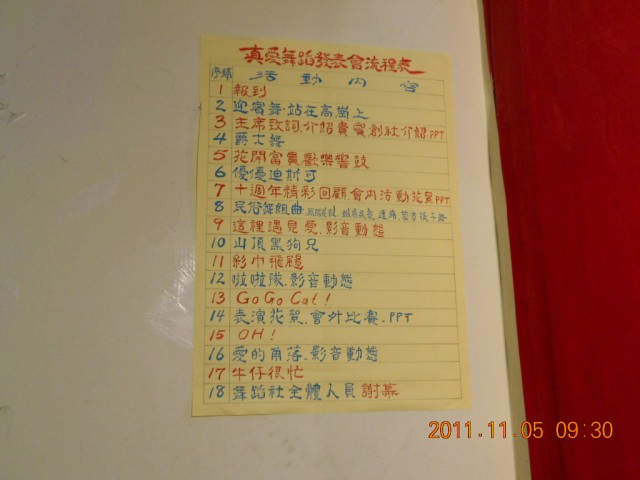 真愛舞蹈發表會流程表
序號 活動內容
1 報到
2 迎賓舞.站在高崗上
3 主席致詞.介紹貴賓創社介紹PPT
4 爵士舞
5 花開富貴歡樂響鼓
6 優優迪斯可
7 十週年精彩回顧.會內活動花絮PPT
8 民俗舞組曲:
9 這裡遇見愛.影音動態
10 山頂黑狗兄
11 彩巾飛颺
12 啦啦隊.影音動態
13 GoGo Cat!
14 表演花絮.會外比賽.PPT
15 OH!
16 愛的角落.影音動態
17 牛仔很忙
18 舞蹈社全體人員謝幕
2011.11.05 09:30